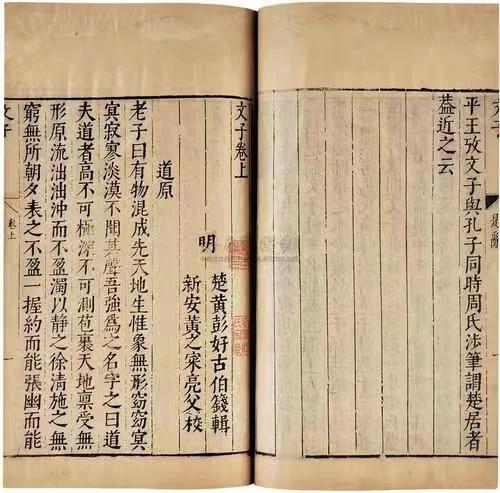 平王攷文子與孔子同時周氏涉筆謂楚居者
葢近之云
文子卷上
明
楚黃彭好古伯籛輯
新安黃之寀亮父校
道原
老子曰有物混成先天地生惟象無形窈窈冥
冥寂寥淡漠不聞其聲吾強為之名字之曰道
夫道者高不可極深不可測苞裹天地稟受無
形原流泏泏沖而不盈濁以靜之徐清施之無
窮無所朝夕表之不盈一握約而能張幽而能
文子
卷上